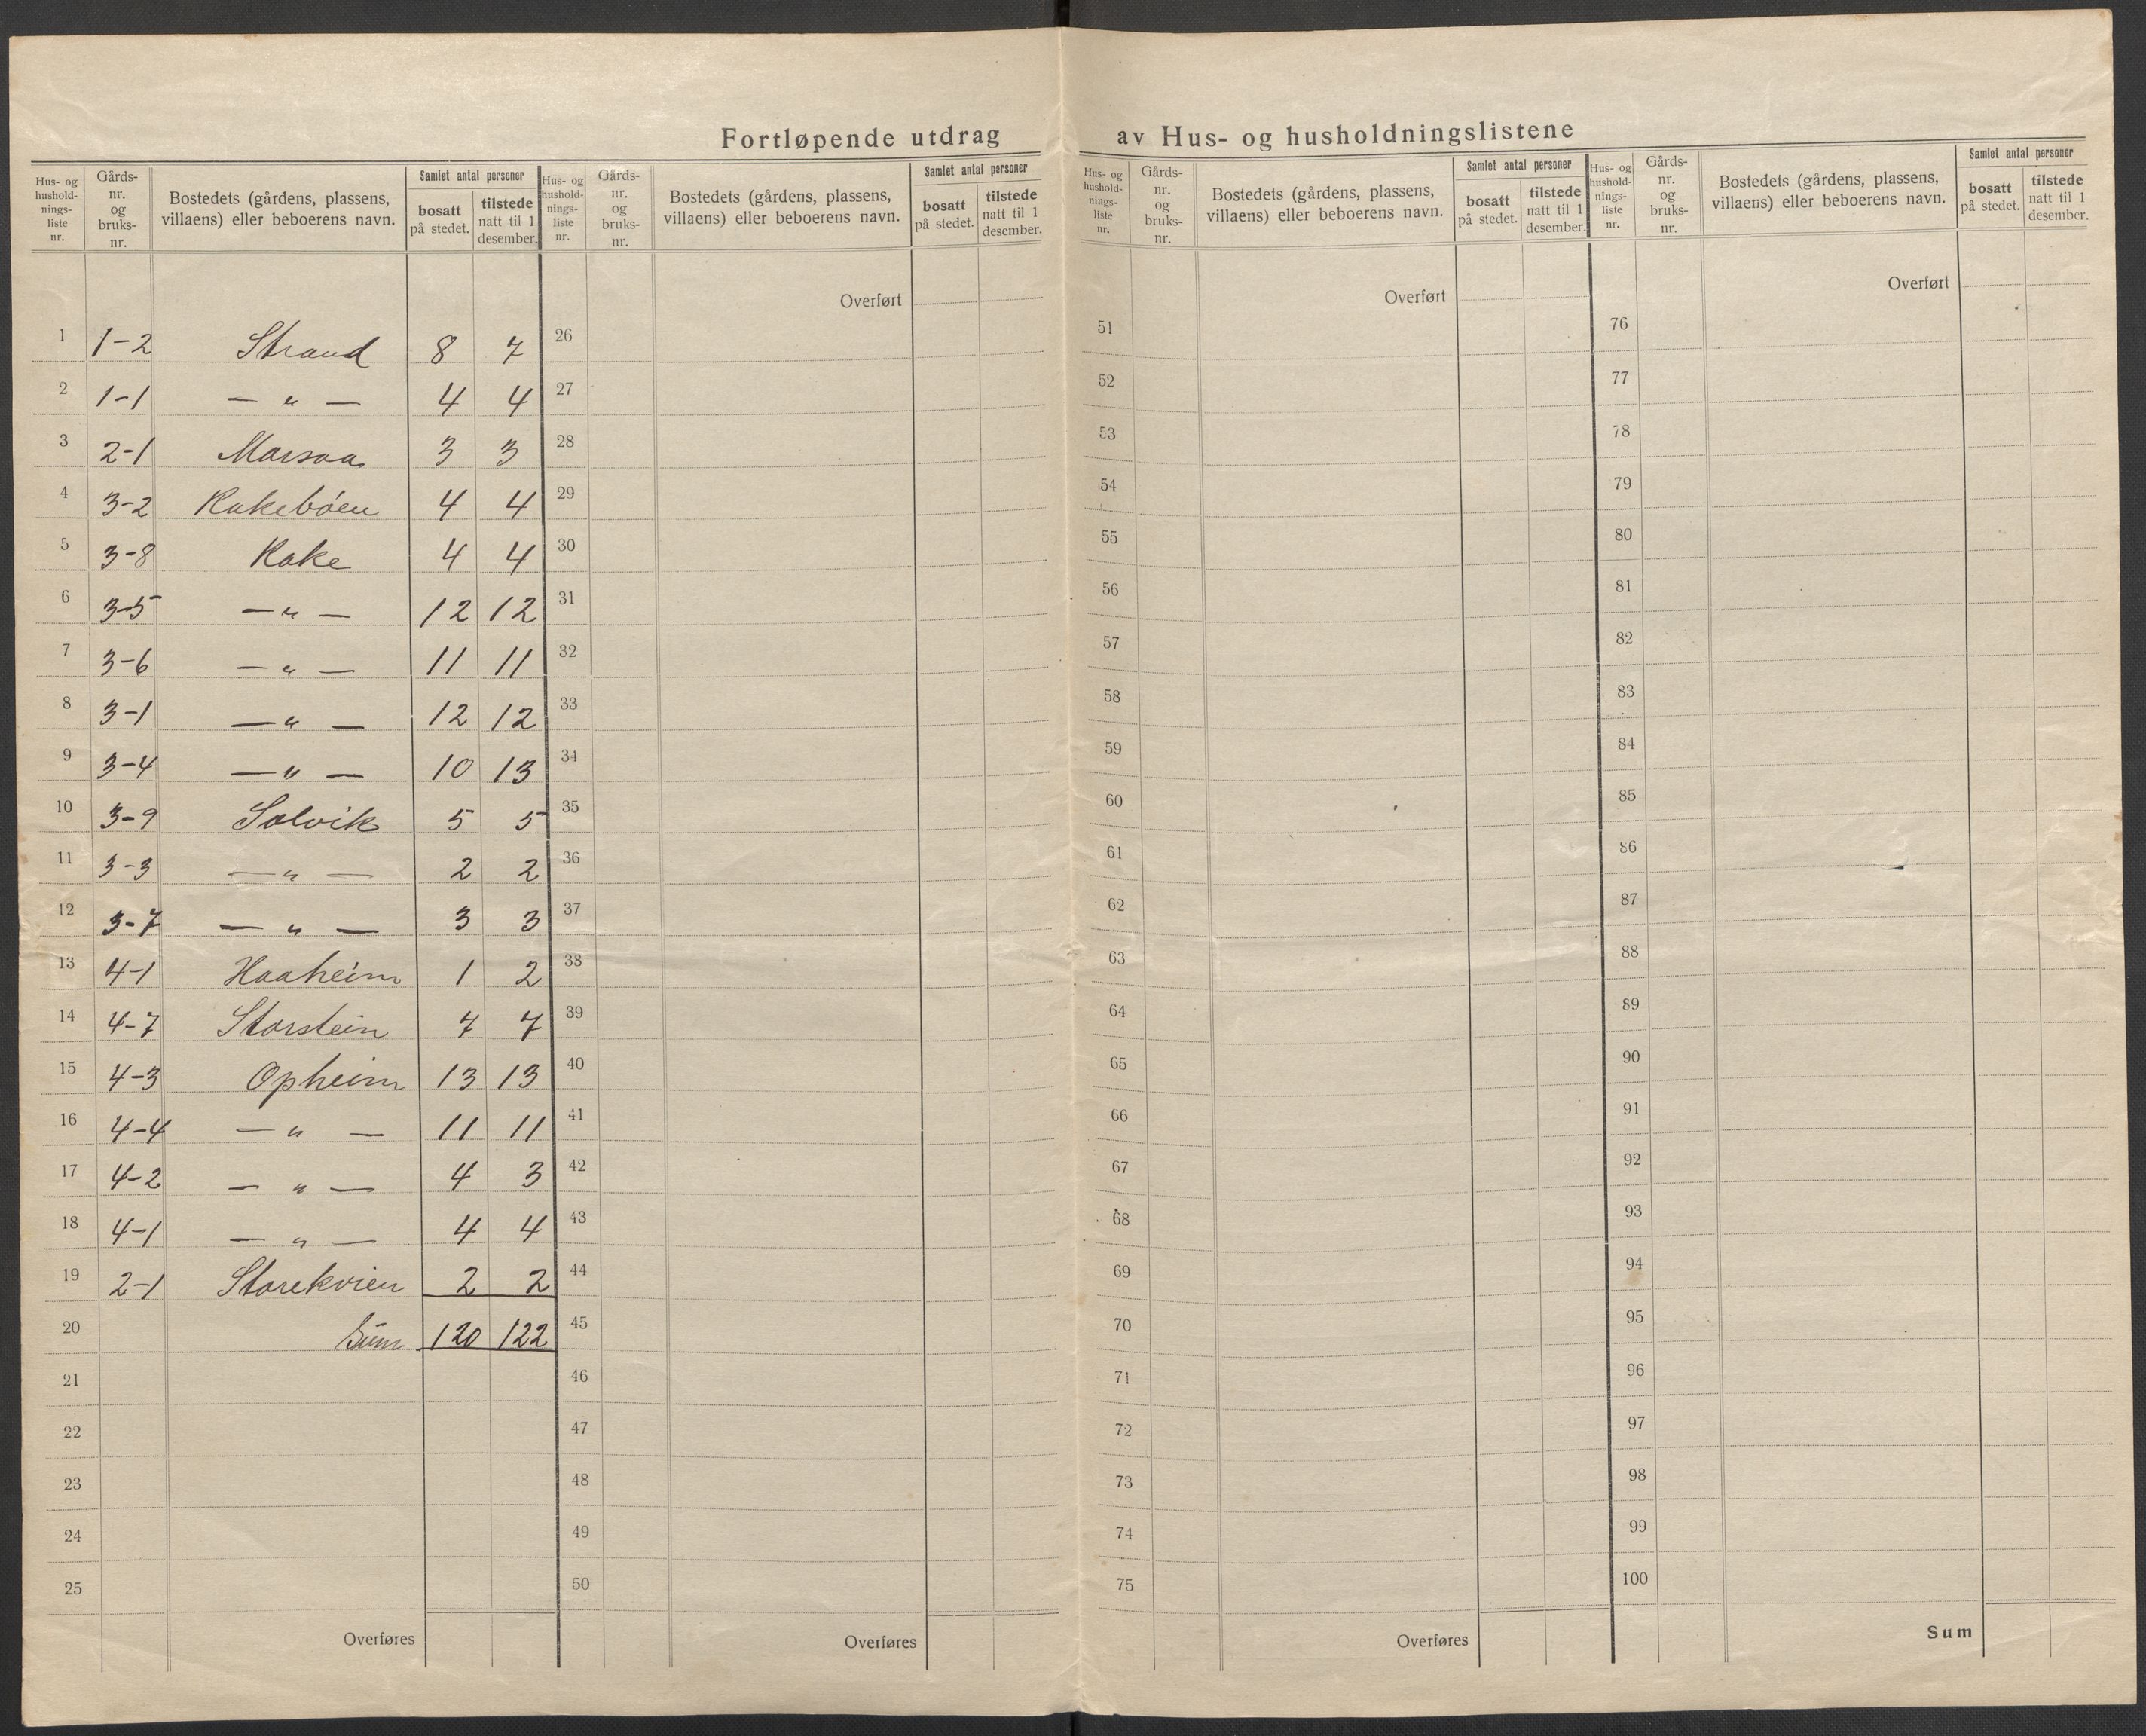 Fortløpende utdrag av Hus- og husholdningslistene
Hus- og hushold- nings- liste nr. Gårds- nr. og bruks- nr. Bostedets (gårdens, plassens, villaens) eller beboerens navn. Samlet antal personer bosatt på stedet. tilstede natt til 1 desember.
Hus- og hushold- nings- liste nr. Gårds- nr. og bruks- nr. Bostedets (gårdens, plassens, villaens) eller beboerens navn. Samlet antal personer bosatt på stedet. tilstede natt til 1 desember.
Hus- og hushold- nings- liste nr. Gårds- nr. og bruks- nr. Bostedets (gårdens, plassens, villaens) eller beboerens navn. Samlet antal personer bosatt på stedet. tilstede natt til 1 desember.
Hus- og hushold- nings- liste nr. Gårds- nr. og bruks- nr. Bostedets (gårdens, plassens, villaens) eller beboerens navn. Samlet antal personer bosatt på stedet. tilstede natt til 1 desember.
Overført Overført Overført
1 1-2 Strand 8 7 26 51 76
2 1-1 — „ — 4 4 27 52 77
3 2-1 Marsaa 3 3 28 53 78
4 3-2 Kakebøen 4 4 29 54 79
5 3-8 Kake 4 4 30 55 80
6 3-5 — „ — 12 12 31 56 81
7 3-6 — „ — 11 11 32 57 82
8 3-1 — „ — 12 12 33 58 83
9 3-4 — „ — 10 13 34 59 84
10 3-9 Solvik 5 5 35 60 85
11 3-3 — „ — 2 2 36 61 86
12 3-7 — „ — 3 3 37 62 87
13 4-1 Haaheim 1 2 38 63 88
14 4-7 Storstein 7 7 39 64 89
15 4-3 Opheim 13 13 40 65 90
16 4-4 — „ — 11 11 41 66 91
17 4-2 — „ — 4 3 42 67 92
18 4-1 — „ — 4 4 43 68 93
19 2-1 Storekvien 2 2 44 69 94
20 Sum 120 122 45 70 95
21 46 71 96
22 47 72 97
23 48 73 98
24 49 74 99
25 50 75 100
Overføres Overføres Overføres Sum